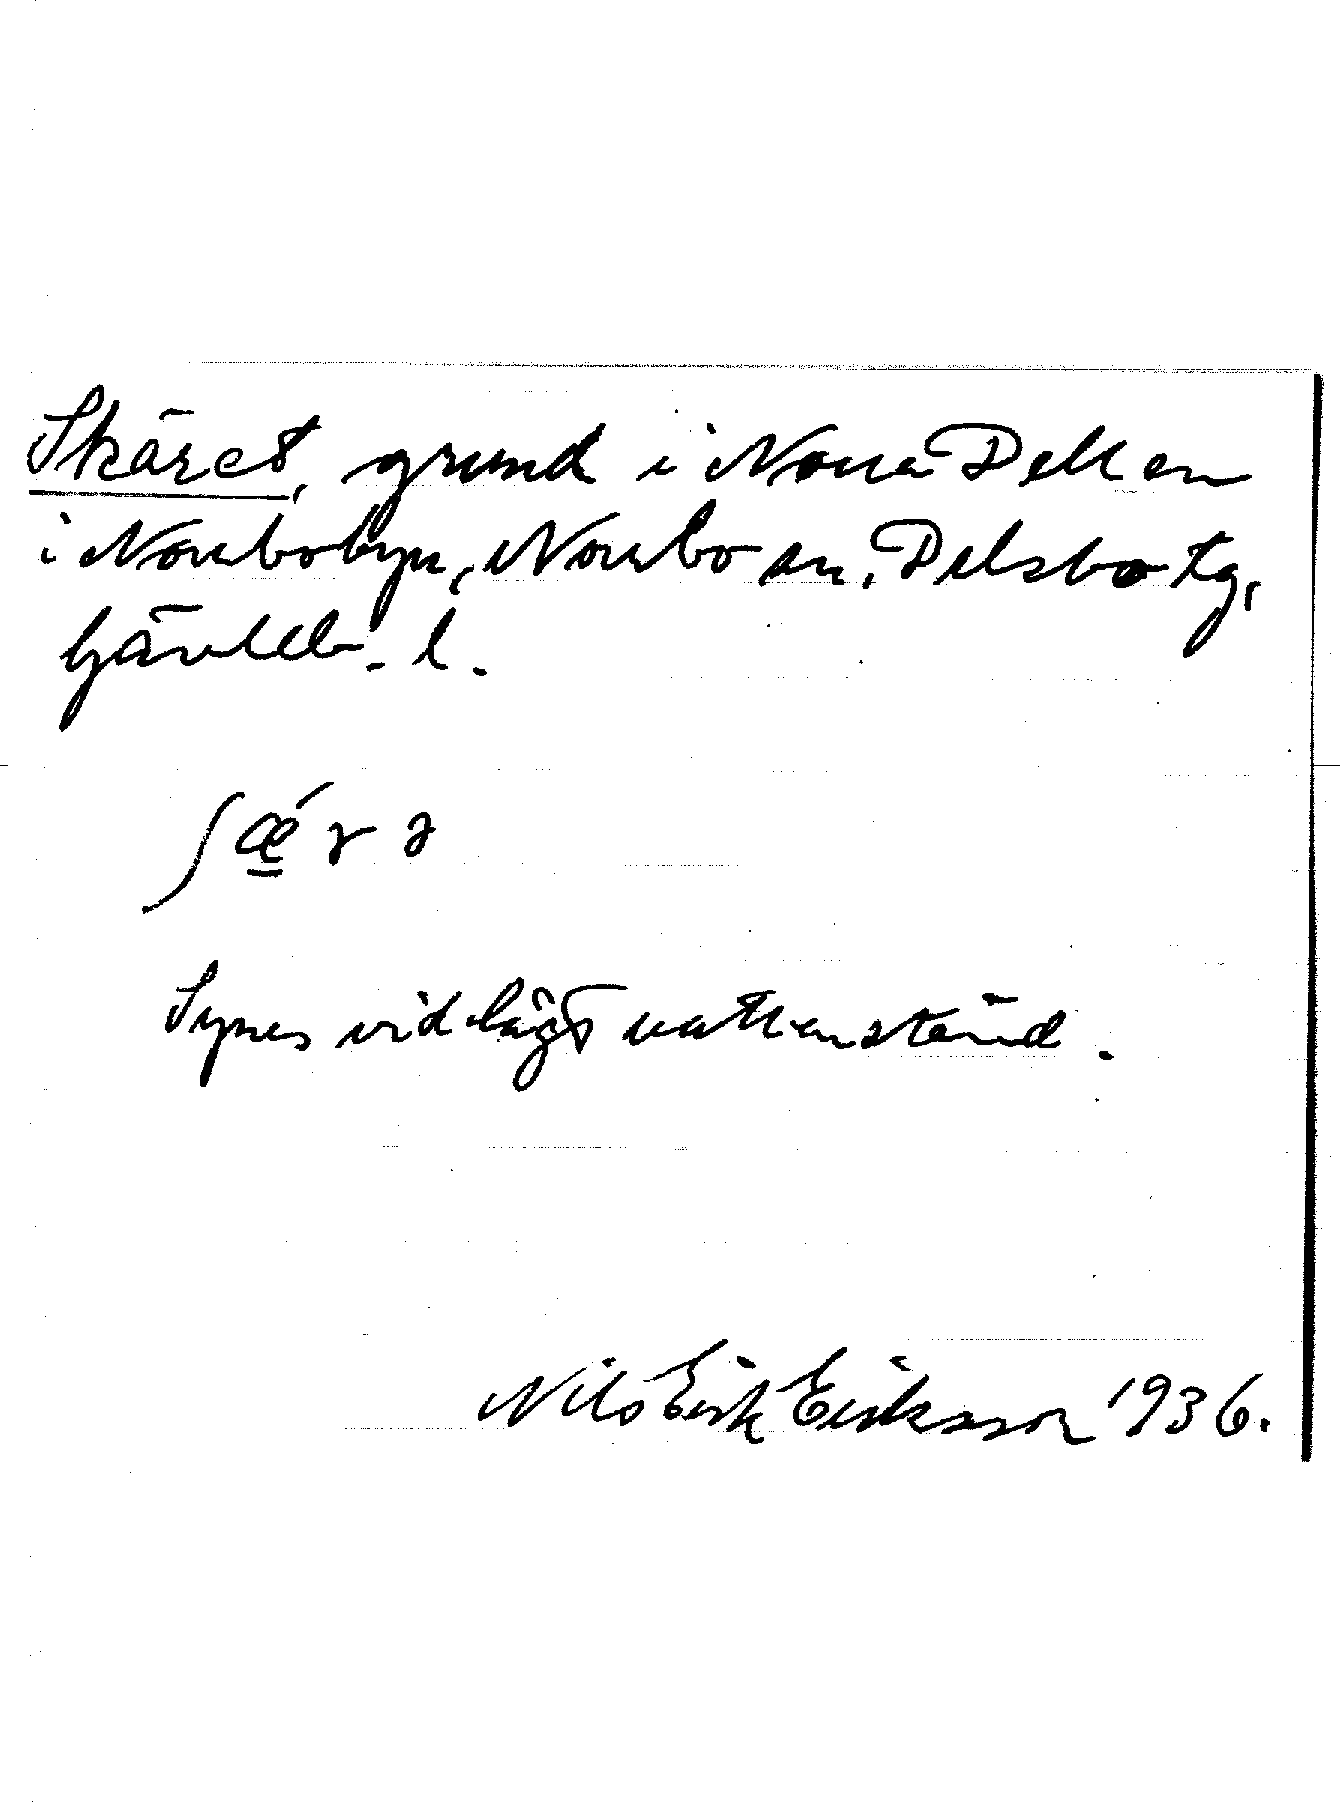 Skäret, grund i Norra Dellen
i Norrbobyn, Norrbo sn, Delsbo tg,
Gävleb. l.
ʃǽrə
Synes vid lågt vattenstånd.
Nils Erik Eriksson 1936.